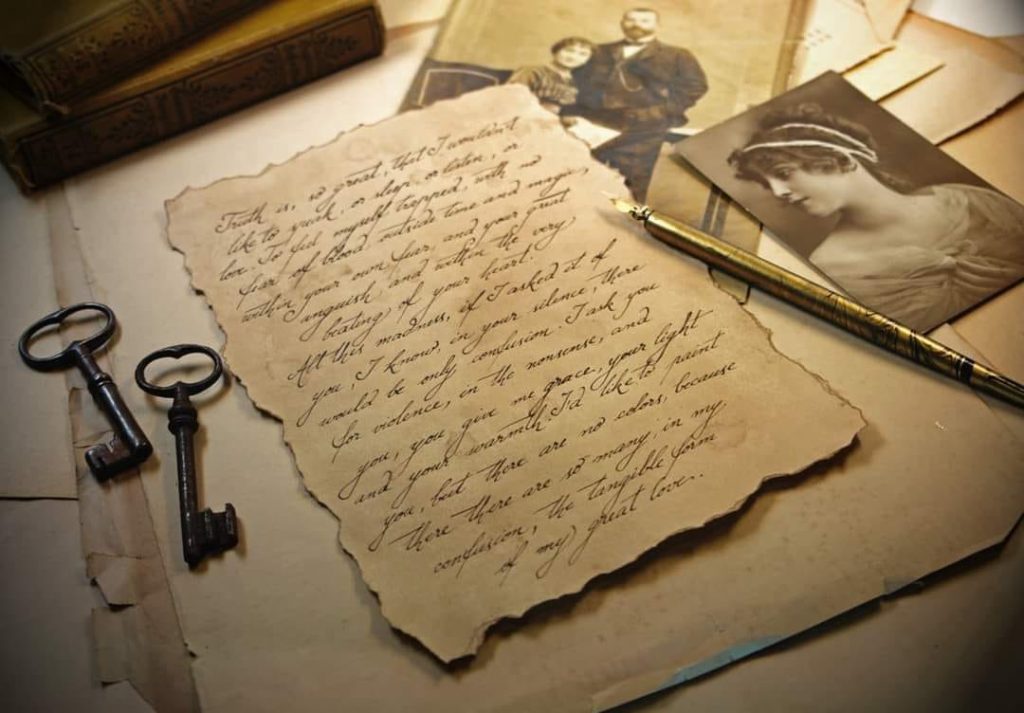 Truth is, so great, that I wouldn't
like to speak, or sleep, or listen, or
love. To feel myself trapped, with no
fear of blood, outside time and magic,
within your own fear, and your great
anguish, and within the very
beating of your heart.
All this madness, if I asked it of
you, I know, in your silence, there
would be only confusion. I ask you
for violence, in the nonsense, and
you, you give me grace, your light
and your warmth. I'd like to paint
you, but there are no colors, because
there there are so many, in my
confusion, the tangible form
of my great love.